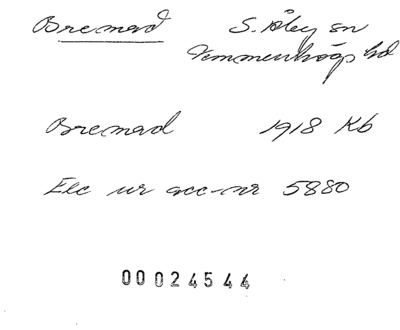 Bremad S. Åby sn
Vemmenhögs hd
Bremad 1918 Kb
Exc ur acc-nr 5880
00024544